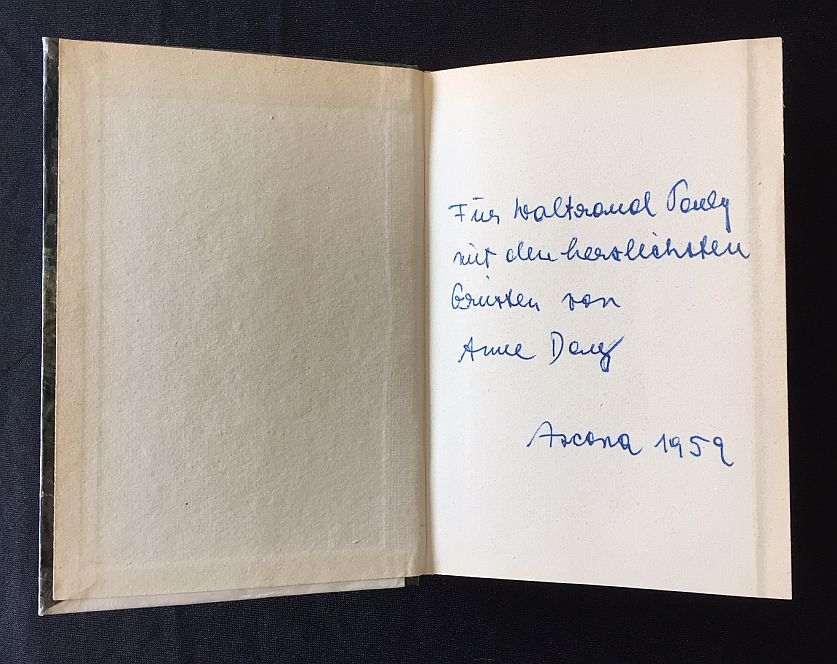 Für Waltraud Pauly
mit den herzlichsten
Grüssen von
Anne
Ascona 1959